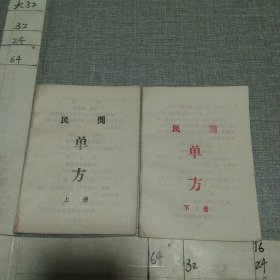 大32
32
24
64
民間
单
方
上册
民間
单
方
下册
64
32
16
24